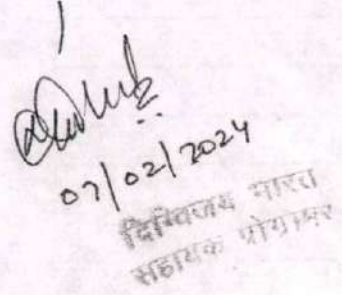 07/02/2024
दिग्विजय भारत
सहायक प्रोग्रामर